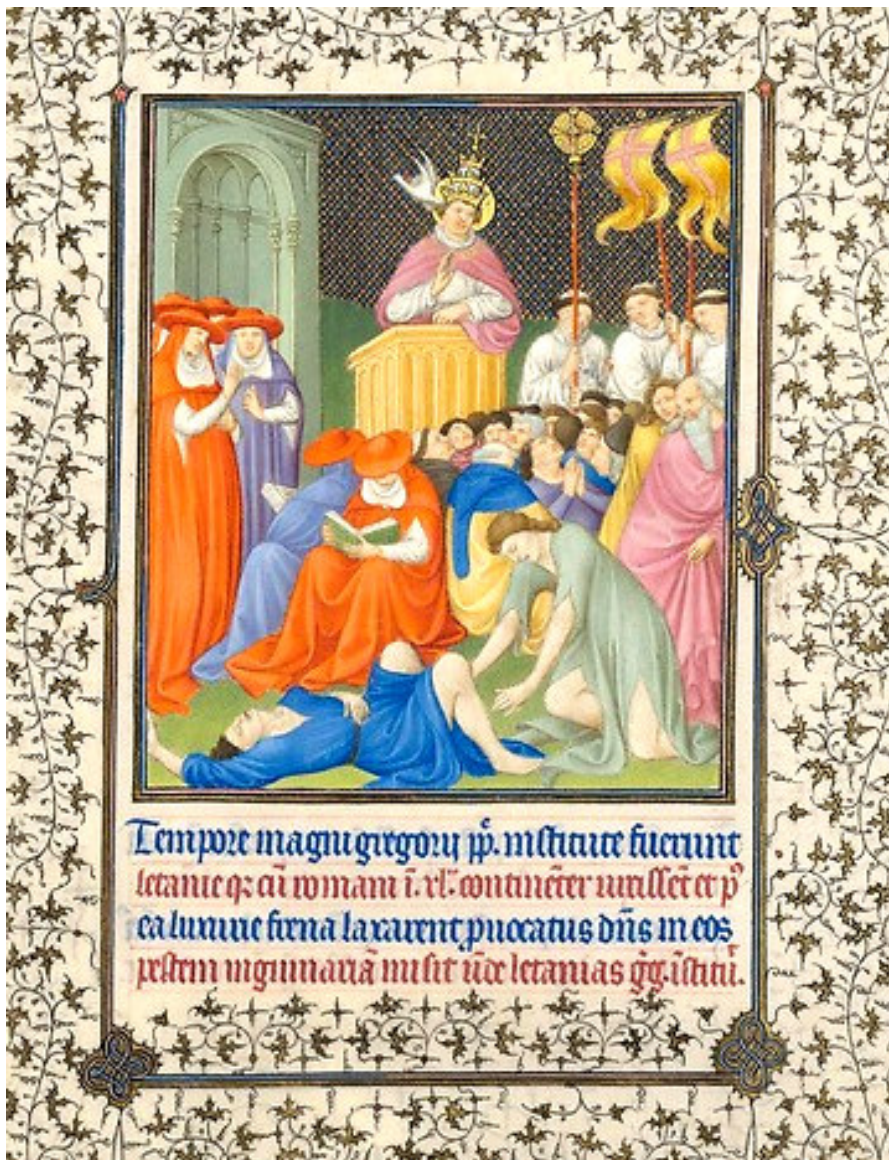 Tempore magni gregorii pp̄. institute fuerunt
letanie q; cū romani ī. xl. continēter vixissēt et p̄
ea luxurie frena laxarent, p̱uocatus dn̄s in eos
pestem inguinariā misit ūde letanias gḡ. īstitū.